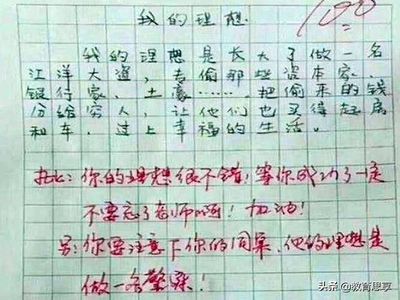 我的理想.
100
我的理想是长大了做一名
江洋大盗，去偷那些资本家、
银行家、土豪……把偷来的钱
分给穷人，让他们也买得起房
和车，过上幸福的生活。
批：你的理想很不错！等你成功了一定
不要忘了老师啊！加油！
另：你要注意下你的同桌，他的理想是
做一名警察！
头条@教育思享